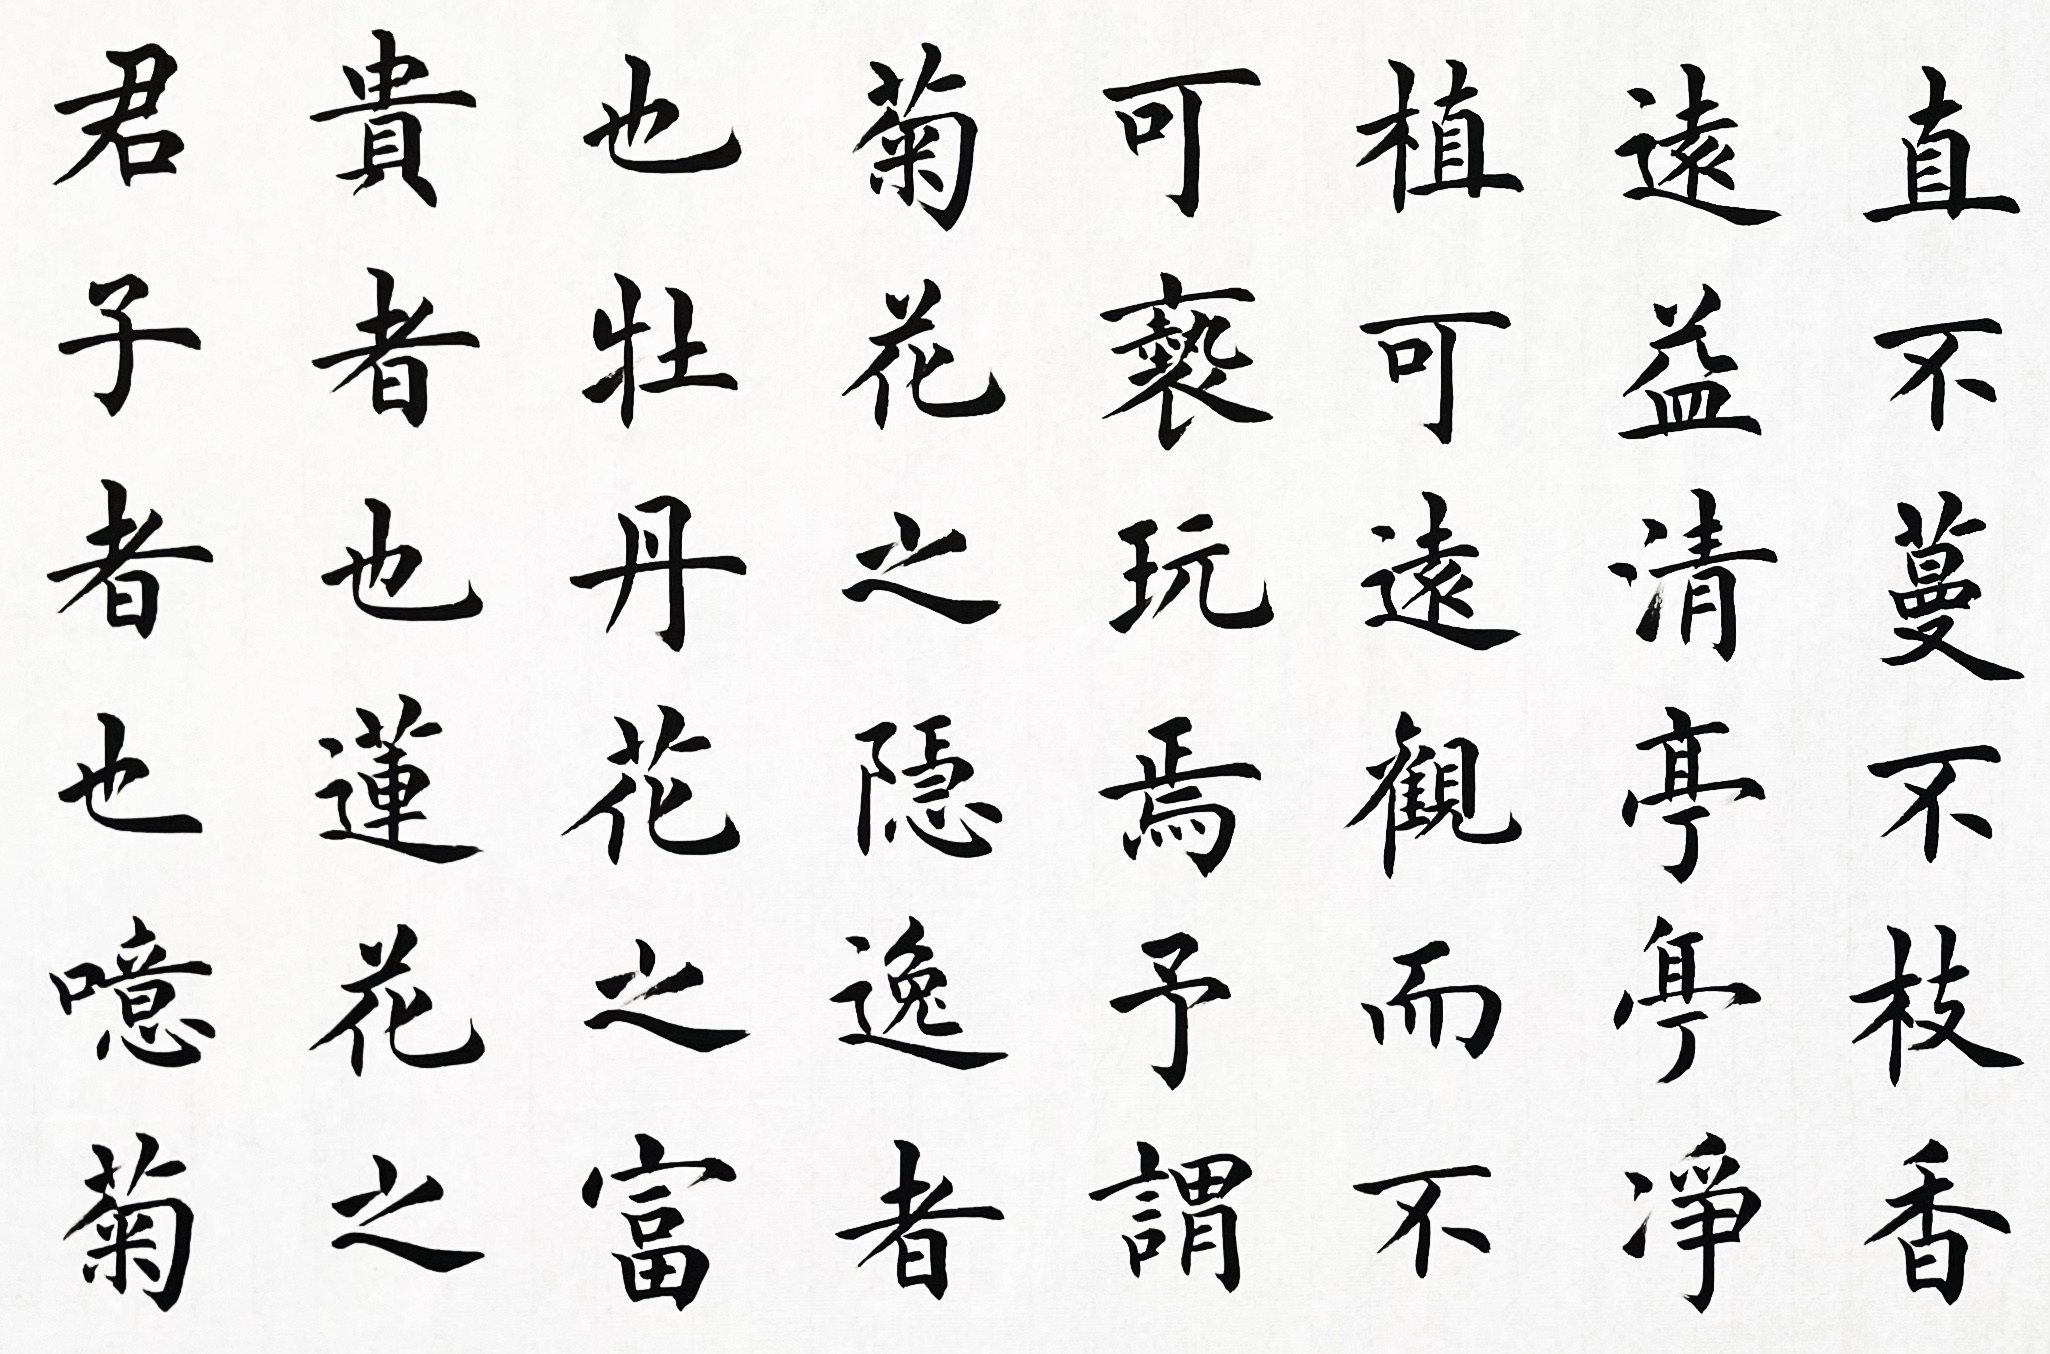 直不蔓不枝香
遠益清亭亭凈
植可遠觀而不
可褻玩焉予謂
菊花之隱逸者
也牡丹花之富
貴者也蓮花之
君子者也噫菊